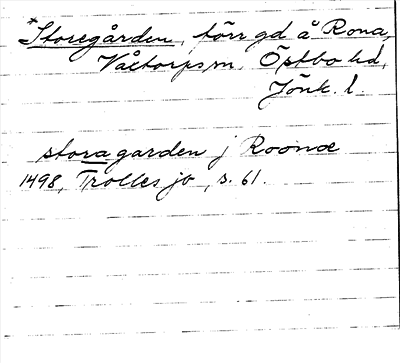 *Storegården, förr gd å Rona,
Våtorps sn, Östbo hd,
Jönk. l.
storagarden j Roonæ
1498, Trolles jb, s. 61.